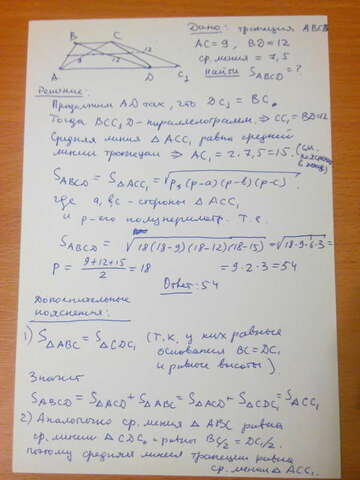 Дано: трапеция ABCD
AC = 9, BD = 12
ср. линия = 7,5
найти S_ABCD = ?
B C 12 9 A D C₁
Решение:
Продолжим AD так, что DC₁ = BC.
Тогда BCC₁D - параллелограмм. ⇒ CC₁ = BD = 12
Средняя линия △ACC₁ равна средней
линии трапеции ⇒ AC₁ = 2·7,5 = 15. (см. пояснения в конце)
S_ABCD = S_△ACC₁ = √p·(p-a)(p-b)(p-c),
где a, b, c - стороны △ACC₁
и p - его полупериметр. Т.е.
S_ABCD = √18(18-9)(18-12)(18-15) = √18·9·6·3 =
p = (9+12+15)/2 = 18 = 9·2·3 = 54
Ответ: 54
Дополнительные
пояснения:
1) S_△ABC = S_△CDC₁ (т.к. у них равные
основания BC = DC₁
и равные высоты).
Значит
S_ABCD = S_△ACD + S_△ABC = S_△ACD + S_△CDC₁ = S_△ACC₁
2) Аналогично ср. линия △ABC равна
ср. линии △CDC₁ и равны BC/2 = DC₁/2.
поэтому средняя линия трапеции равна
ср. линии △ACC₁.